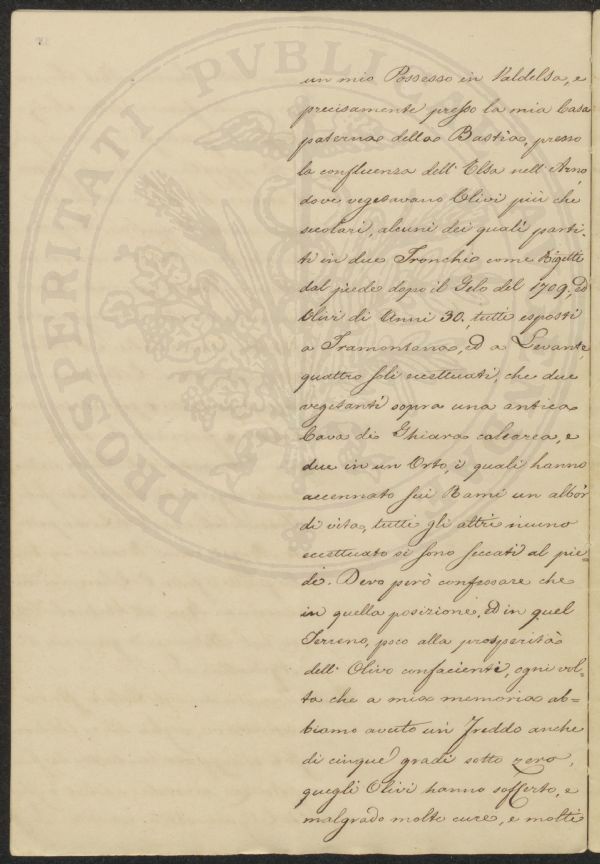 un mio Possesso in Valdelsa, e
precisamente presso la mia Casa
paterna della Bastia, presso
la confluenza dell' Elsa nell' Arno,
dove vegetavano Olivi più che
secolari, alcuni dei quali parti-
ti in due Tronchi come Rigetti
dal piede dopo il Gelo del 1709, ed
Olivi di Anni 30, tutti esposti
a Tramontana, ed a Levante,
quattro soli eccettuati, che due
vegetanti sopra una antica
Cava di Ghiara calcarea, e
due in un Orto, i quali hanno
accennato sui Rami un albòr
di vita, tutti gli altri niuno
eccettuato si sono seccati al pie-
de. Devo però confessare che
in quella posizione, ed in quel
Terreno, poco alla prosperità
dell' Olivo confacienti, ogni vol=
ta che a mia memoria ab=
biamo avuto un Freddo anche
di cinque gradi sotto zero,
quegli Olivi hanno sofferto, e
malgrado molte cure, e molti
PROSPERITATI PVBLICAE